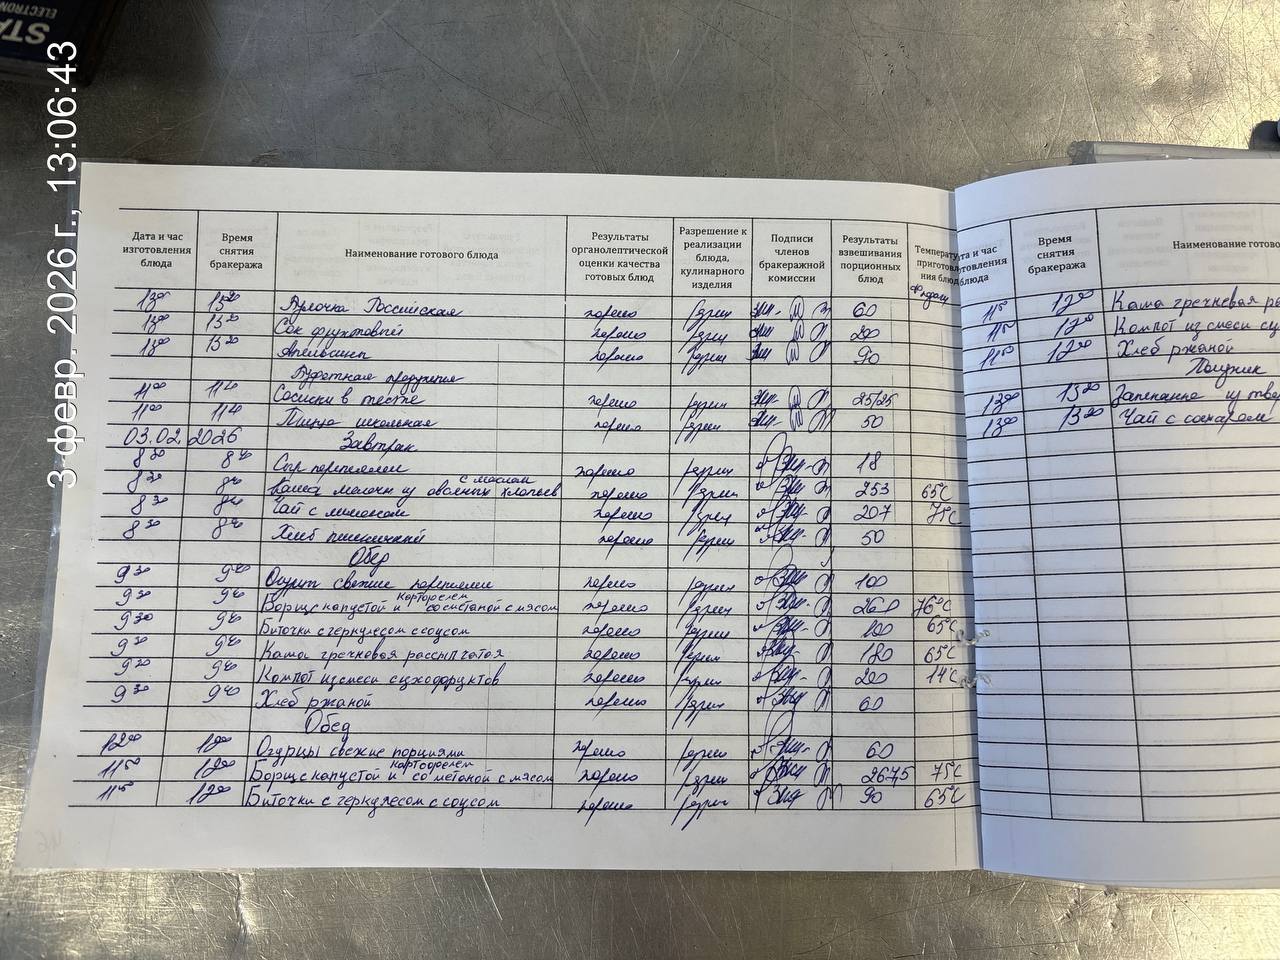 STA
ELECTRON
3 февр. 2026 г., 13:06:43
Дата и час изготовления блюда Время снятия бракеража Наименование готового блюда Результаты органолептической оценки качества готовых блюд Разрешение к реализации блюда, кулинарного изделия Подписи членов бракеражной комиссии Результаты взвешивания порционных блюд
13 20 Булочка Российская хорошо 60
13 20 Сок фруктовый хорошо 200
13 20 Апельсин хорошо 90
Буфетная продукция
11 00 Сосиски в тесте хорошо 25/25
11 00 Пицца школьная хорошо 50
03.02 2026 Завтрак
8 30 8 40 Сыр порциями хорошо 18
8 30 8 40 Каша молочн из овсяных хлопьев с маслом хорошо 253 65°С
8 30 8 40 Чай с лимоном хорошо 207 75°С
8 30 8 40 Хлеб пшеничный хорошо 50
Обед
9 30 9 40 Огурцы свежие порциями хорошо 100
9 30 9 40 Борщ с капустой и картофелем со сметаной с мясом хорошо 76°С
9 30 9 40 Биточки с геркулесом с соусом хорошо 100 65°С
9 30 9 40 Каша гречневая рассыпчатая хорошо 180 65°С
9 30 9 40 Компот из смеси сухофруктов хорошо 200 14°С
9 30 9 40 Хлеб ржаной хорошо 60
Обед
12 00 Огурцы свежие порциями хорошо 60
11 50 12 00 Борщ с капустой и картофелем со сметаной с мясом хорошо 75°С
11 50 12 00 Биточки с геркулесом с соусом хорошо 90 65°С
Время снятия бракеража
11 50 12 00 Каша гречневая
11 50 12 00 Компот из смеси
11 50 12 00 Хлеб ржаной
Полдник
13 00 13 20 Запеканка из
13 00 13 20 Чай с сахаром